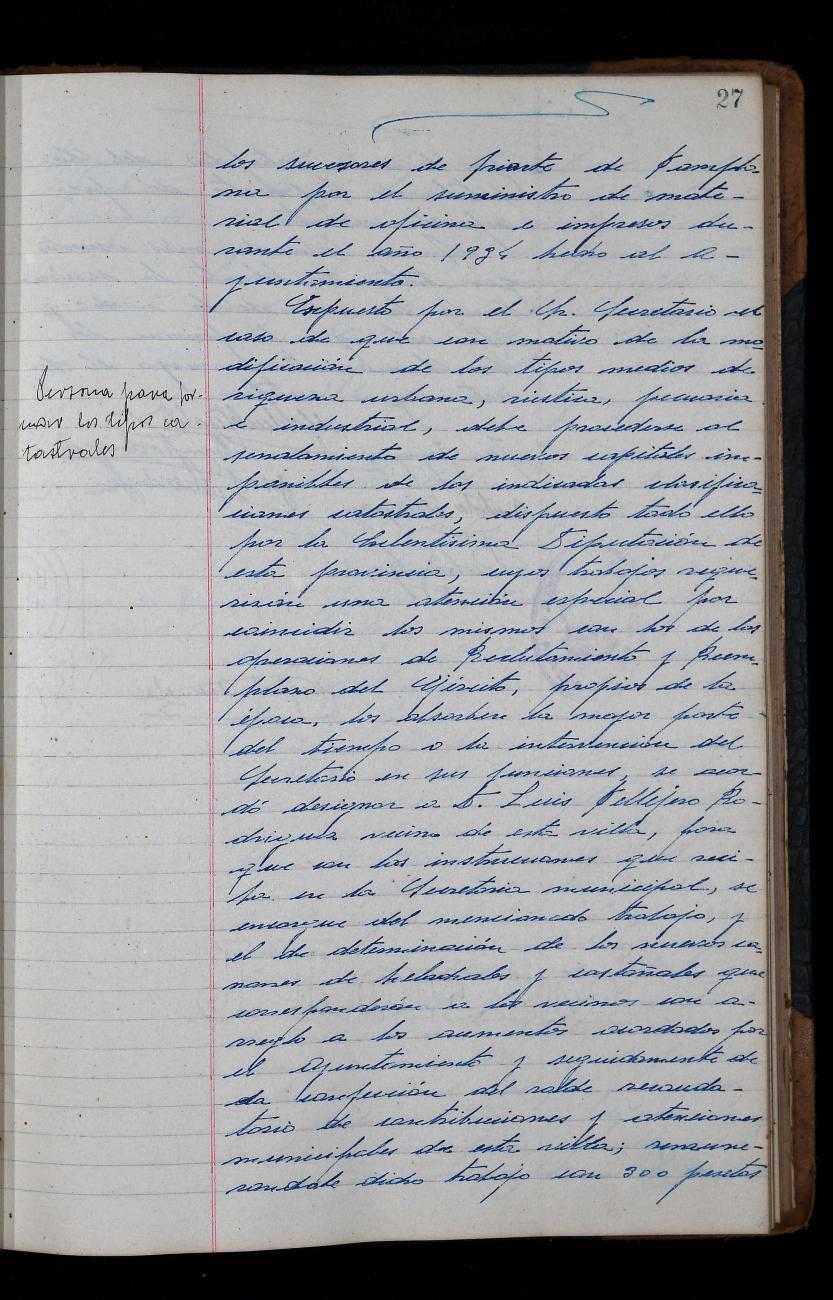 27
los sucesores de friarte de Pamplo-
na por el suministro de mate-
rial de oficina e impresos du-
rante el año 1934 hecho al A-
yuntamiento.
Expuesto por el Sr. Secretario el
caso de que con motivo de la mo-
dificación de los tipos medios de
riqueza urbana, rústica, pecuaria
e industrial, debe procederse al
señalamiento de nuevos capitales im-
Persona para for-
mar los tipos ca-
tastrales
ponibles de los indicadas clasifica-
ciones catastrales, dispuesto todo ello
por la Exelentísima Diputación de
esta provincia, cuyos trabajos reque-
rirían una atención especial por
coincidir los mismos con los de las
operaciones de Reclutamiento y Reem-
plazo del Ejército, propios de la
época, los absorben la mayor parte
del tiempo o la intervención del
Secretario en sus funciones, se acor-
dó designar a D. Luis Tellejero Ro-
driguez vecino de esta villa, para
que con los instrucciones que reci-
ba en la Secretaria municipal, se
encargue del mencionado trabajo, y
el de determinación de los nuevos ca-
nones de helechales y castañales que
corresponderán a los vecinos con a-
rreglo a los aumentos acordados por
el Ayuntamiento y seguidamente de
la confección del rolde recauda-
torio de contribuciones y atenciones
municipales de esta villa; remune-
randole dicho trabajo con 300 pesetas